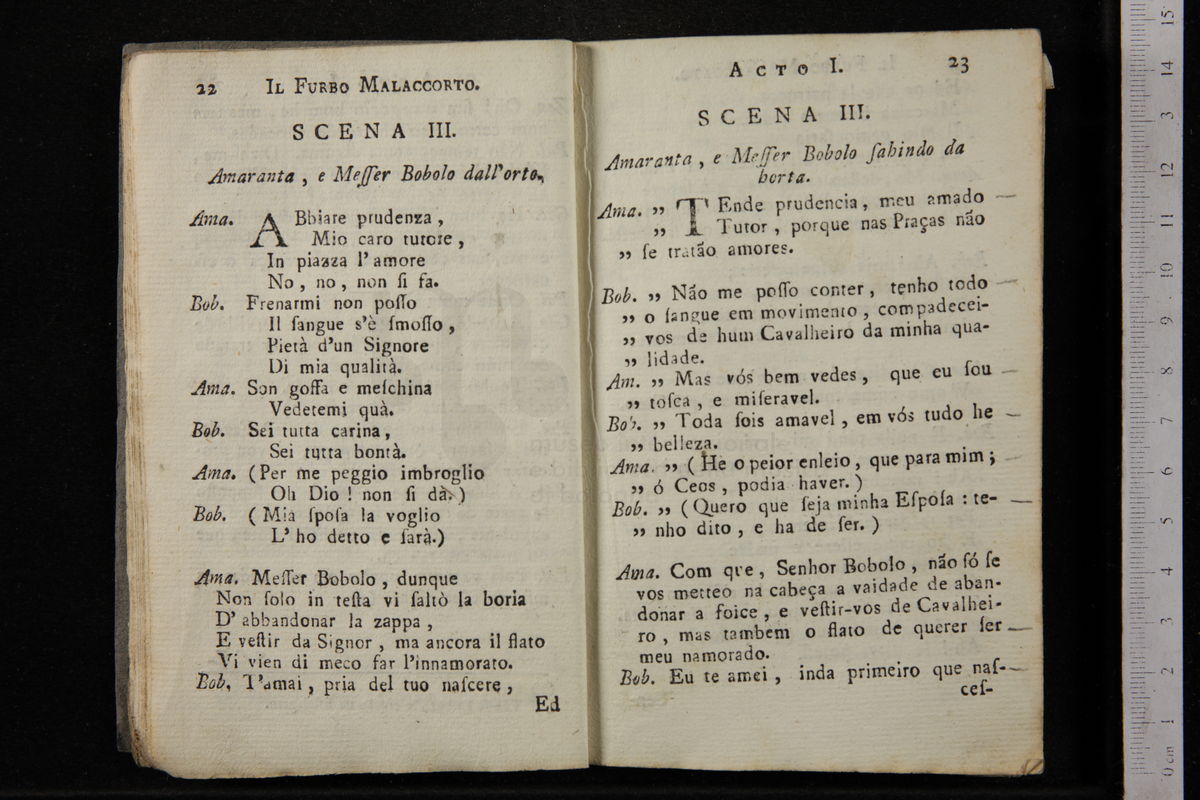 22 IL FURBO MALACCORTO.
SCENA III.
Amaranta , e Meſſer Bobolo dall'orto.
Ama. ABbiare prudenza ,
Mio caro tutore ,
In piazza l'amore
No , no , non ſi fa.
Bob. Frenarmi non poſſo
Il ſangue s'è ſmoſſo ,
Pietà d'un Signore
Di mia qualità.
Ama. Son goffa e meſchina
Vedetemi quà.
Bob. Sei tutta carina ,
Sei tutta bontà.
Ama. (Per me peggio imbroglio
Oh Dio ! non ſi dà.)
Bob. ( Mia ſpoſa la voglio
L'ho detto e ſarà.)
Ama. Meſſer Bobolo , dunque
Non ſolo in teſta vi ſaltò la boria
D'abbandonar la zappa ,
E veſtir da Signor , ma ancora il flato
Vi vien di meco far l'innamorato.
Bob. T'amai , pria del tuo naſcere ,
Ed
ACTO I. 23
SCENA III.
Amaranta , e Meſſer Bobolo ſahindo da
horta.
Ama. ,, TEnde prudencia , meu amado
,, Tutor , porque nas Praças não
,, ſe tratão amores.
Bob. ,, Não me poſſo conter , tenho todo
,, o ſangue em movimento , compadecei-
,, vos de hum Cavalheiro da minha qua-
,, lidade.
Am. ,, Mas vós bem vedes , que eu ſou
,, toſca , e miſeravel.
Bob. ,, Toda ſois amavel , em vós tudo he
,, belleza.
Ama. ,, ( He o peior enleio , que para mim ;
,, ó Ceos , podia haver. )
Bob. ,, (Quero que ſeja minha Eſpoſa : te-
,, nho dito , e ha de ſer. )
Ama. Com que , Senhor Bobolo , não ſó ſe
vos metteo na cabeça a vaidade de aban-
donar a foice , e veſtir-vos de Cavalhei-
ro , mas tambem o flato de querer ſer
meu namorado.
Bob. Eu te amei , inda primeiro que naſ-
ceſ-
0 cm 1 2 3 4 5 6 7 8 9 10 11 12 3 14 15